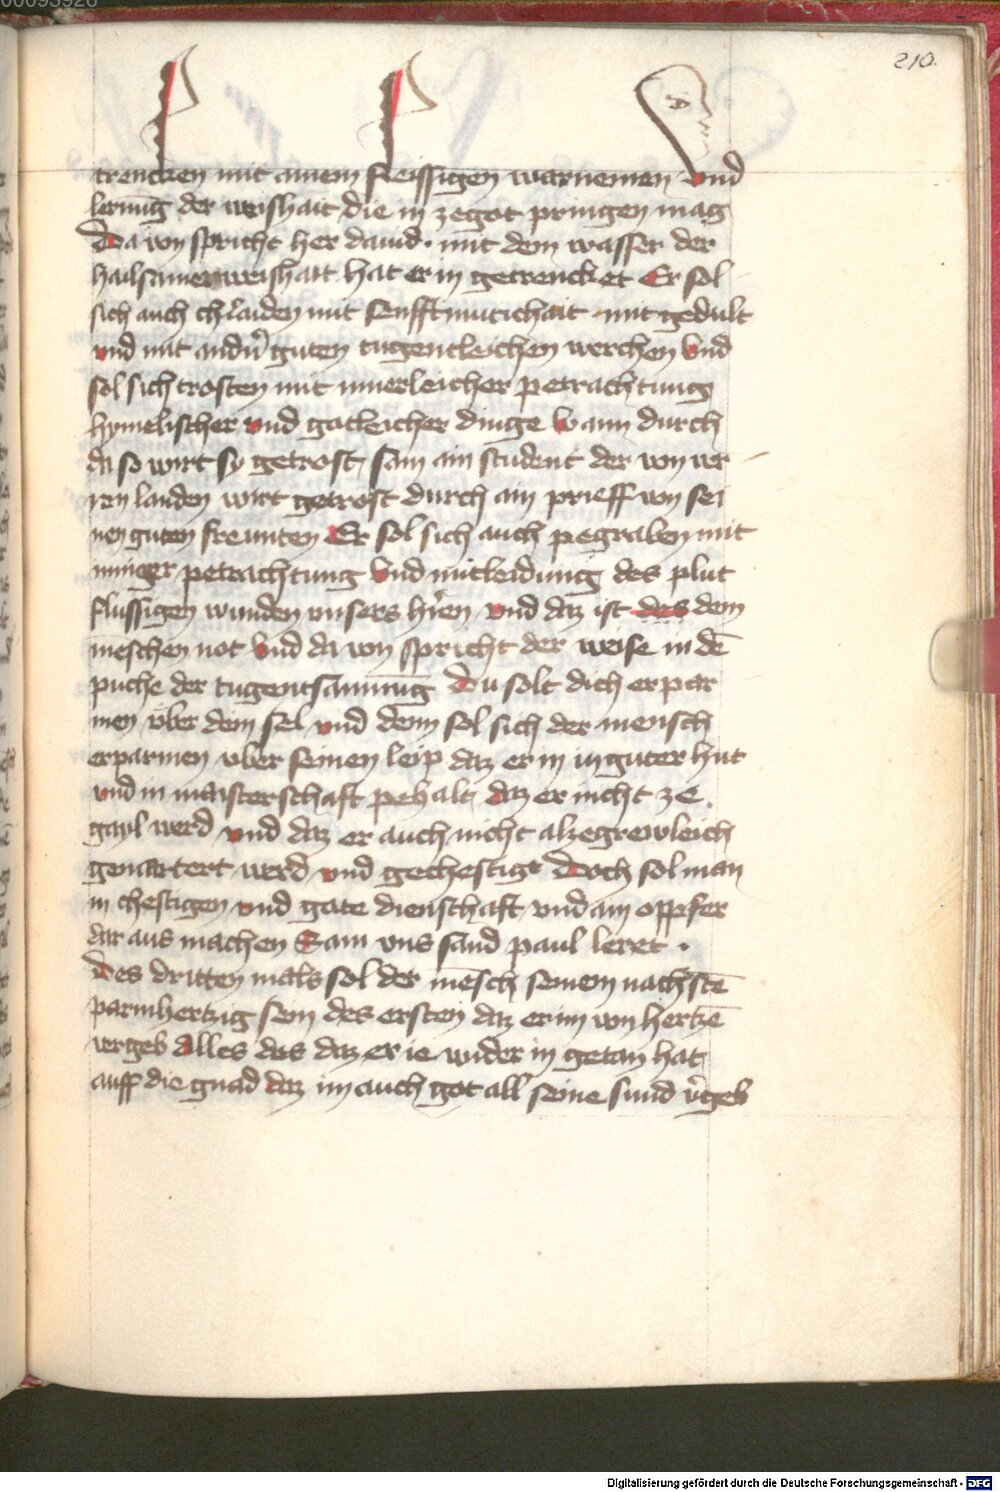 00093926
210.
trencken mit ainem fleissigen warnemen vnd
lernūg der weishait die in zegot pringen mag
Da von spricht her dauid · mit dem wasser der
hailsamen weishait hat er in getrencket Er sol
sich auch chlaiden mit senfftmutichait mit gedult
vnd mit andn̄ guten tugentleichen werchen Vnd
sol sich trosten mit innerleicher petrachtung
hymelischer vnd gotleicher dinge Wann durch
da so wirt sy getrost sam ain student der von ver
ren landen wirt getrost durch ain prieff von sei
nen guten freunten Er sol sich auch pegraben mit
inniger petrachtung Vnd mitleidung des plut
flussigen wunden vnsers hr̄en vnd daz ist des dem
mēschen not Vnd da von spricht der weise in dē
puche der tugentsamnūg Du solt dich erpar
men vber dein sel vnd denn sol sich der mensch
erparmen vber seinen leip daz er in in guter hut
vnd in maisterschaft pehalt daz er nicht ze
gayl werd vnd daz er auch nicht alzegrewleich
gemartert werd vnd gechestigt Doch sol man
in chestigen vnd gote dienschaft vnd ain oppfer
dar aus machen Sam vns sand paul leret ·
Des dritten mals sol der mēsch seinem nachstē
parmhertzig sein des ersten daz er im von hertzē
vergeb Alles das daz er ie wider in getan hat
auff die gnad daz im auch got all seine sund v̄geb
Digitalisierung gefördert durch die Deutsche Forschungsgemeinschaft - DFG